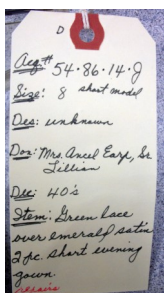 D
Acq# 54.86.14.J
Size: 8 short model
Des: unknown
Don: Mrs. Ancel Earp, Sr.
Lillian
Dec: 40's
Item: Green lace
over emerald satin
2 pc. short evening
gown.
repairs